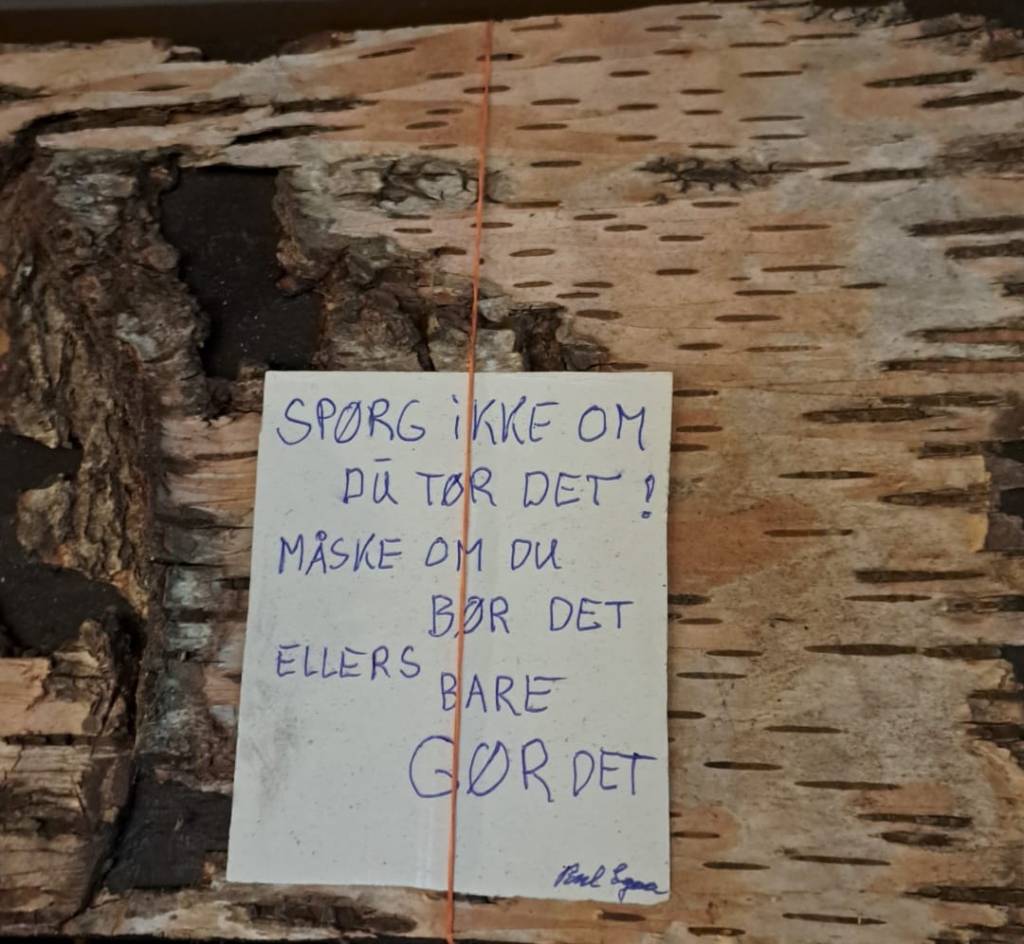 SPØRG iKKE OM
DŪ TØR DET !
MÅSKE OM DU
BØR DET
ELLERS
BARE
GØR DET